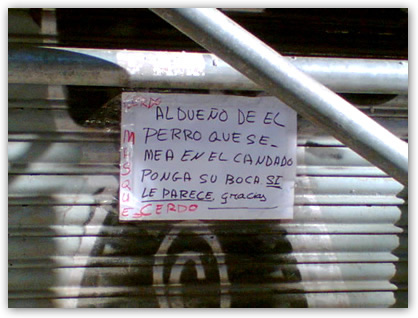 CERDO
AL DUEÑO DE EL
PERRO QUE SE_
MEA EN EL CANDADO
PONGA SU BOCA SI
LE PARECE, gracias
QUE
CERDO